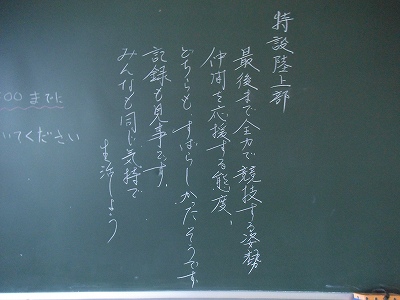 特設陸上部
最後まで全力で競技する姿勢
仲間を応援する態度、
どちらも、すばらしかったそうです
記録も見事です。
みんなも同じ気持で
生活しよう
00までに
いてください